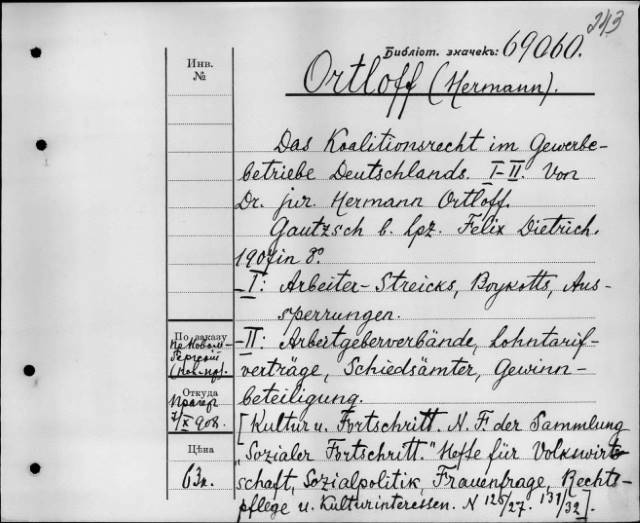 243
Библіот. значекъ: 69060.
Инв.
№
Ortloff (Hermann).
Das Koalitionsrecht im Gewerbe-
betriebe Deutschlands. I-II. Von
Dr. jur. Hermann Ortloff.
Gautzsch b. Lpz. Felix Dietrich.
1907 in 8°.
-I: Arbeiter-Streicks, Boykotts, Aus-
sperrungen.
-II: Arbeitgeberverbände, Lohntarif-
verträge, Schiedsämter, Gewinn-
beteiligung.
[Kultur u. Fortschritt. N. F. der Sammlung
"Sozialer Fortschritt." Hefte für Volkswirt-
schaft, Sozialpolitik, Frauenfrage, Rechts-
pflege u. Kulturinteressen. N 126/27. 131/32].
По заказу
Откуда
7/X 908.
Цѣна
63к.